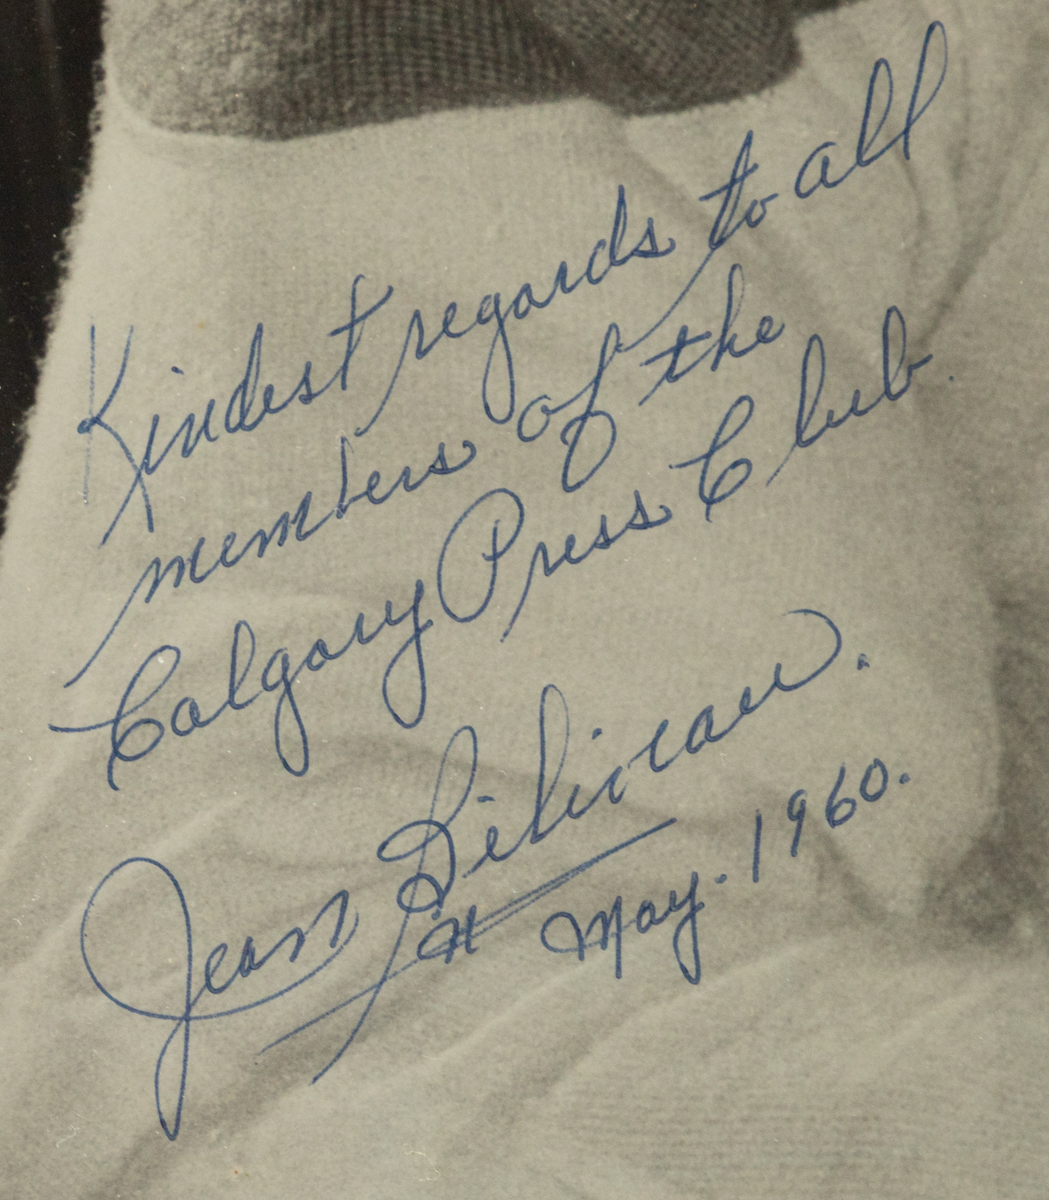 Kindest regards to all
members of the
Calgary Press Club.
Jean Béliveau.
4 May. 1960.